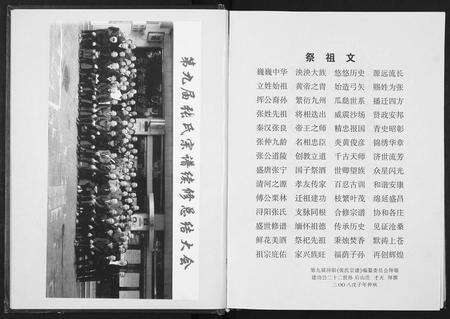 第九届张氏宗谱续修总结大会
祭祖文
巍巍中华 泱泱大族 悠悠历史 源远流长
立姓始祖 黄帝之胄 始造弓矢 赐姓为张
挥公裔孙 繁衍九州 瓜瓞世系 播迁四方
张姓先祖 将相迭出 威震沙场 贤政安邦
秦汉张良 帝王之师 精忠报国 青史昭彰
张仲九龄 名相忠臣 炎黄俊彦 锦绣华章
张公道陵 创教立道 千古天师 济世流芳
盛唐张宁 国子祭酒 世卿望族 众星闪光
清河之源 孝友传家 百忍古训 和谐安康
傅公梁林 迁祖建功 枝繁叶茂 绵延盛昌
浔阳张氏 支脉同根 合修宗谱 协和各庄
盛世修谱 缅怀祖德 传承历史 见证沧桑
鲜花美酒 祭祀先祖 秉烛焚香 默祷上苍
祖宗庇佑 家兴族旺 福荫子孙 再创辉煌
第九届浔阳《张氏宗谱》编纂委员会拜祭
二〇〇八戊子年仲秋